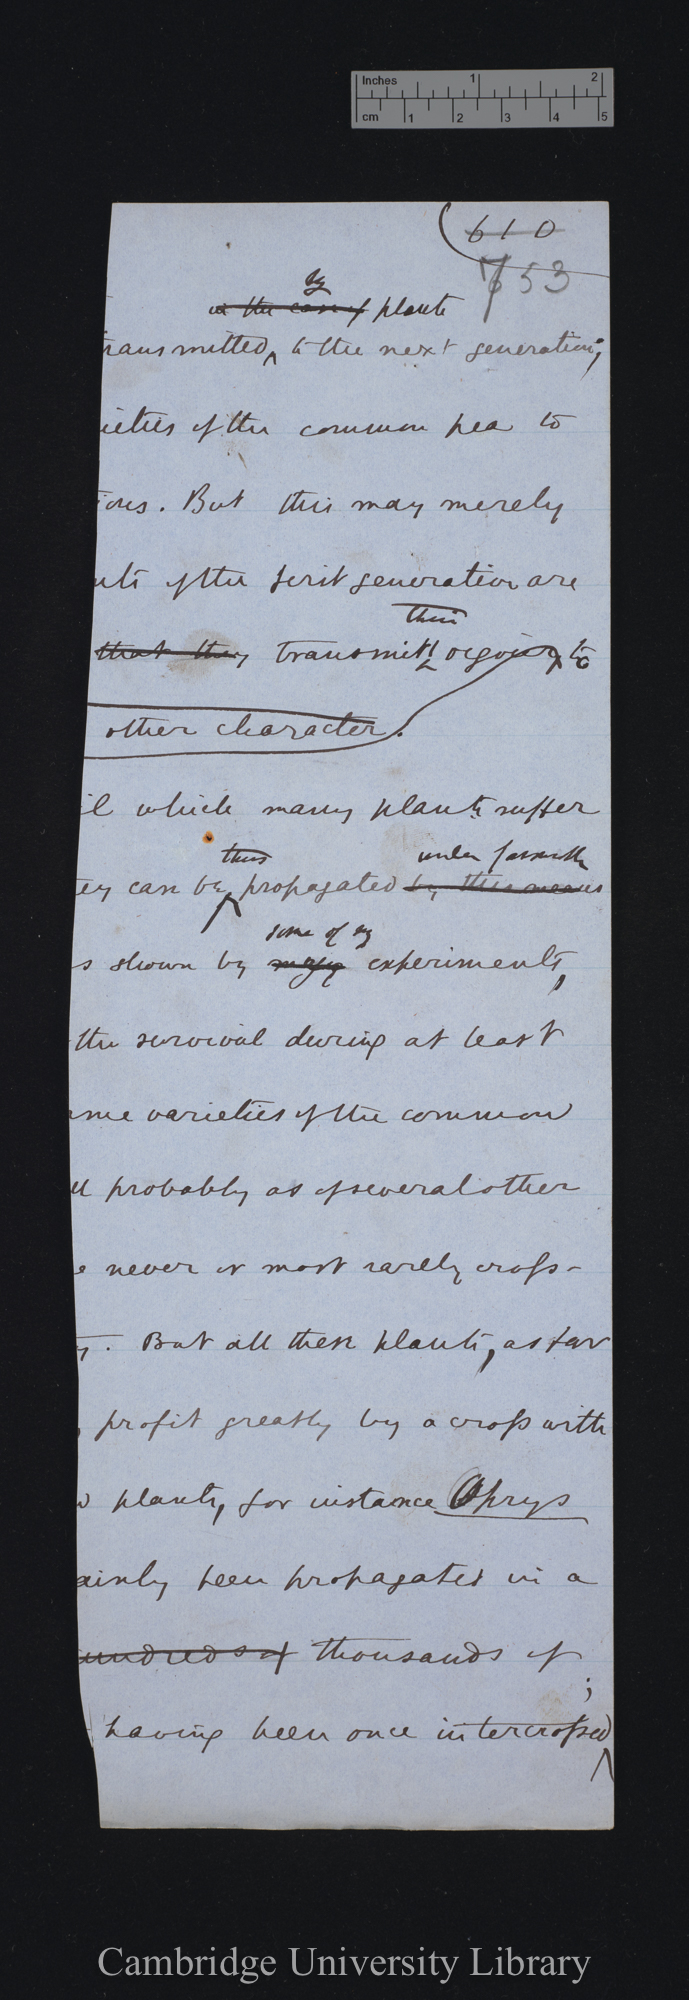 Inches 1 2
cm 1 2 3 4 5
610
753
by
in the case of plants
ransmitted, to the next generation;
ieties of the common pea to
ions. But this may merely
nts of the first generation are
their
that they transmit origin, to
other character.
il which many plants suffer
thus
ey can be propagated by this means
some of my
s shown by many experiments,
the survival during at least
ome varieties of the common
ll probably as of several other
e never or most rarely cross-
y. But all these plants, as far
, profit greatly by a cross with
w plants, for instance Ophrys
ainly been propagated in a
undreds of thousands of
having been once intercrossed;
Cambridge University Library